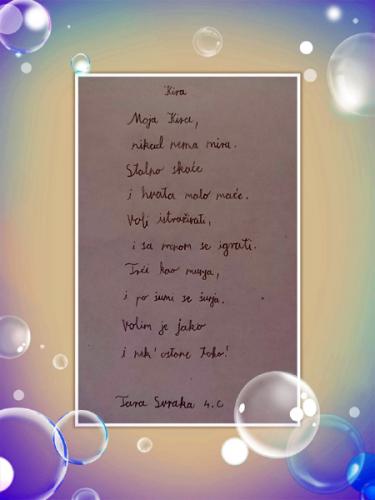 Kira
Moja Kira,
nikad nema mira.
Stalno skače
i hvata malo mače.
Voli istraživati,
i sa mnom se igrati.
Trči kao munja,
i po šumi se šunja.
Volim je jako
i nek' ostane tako!
Tara Svraka 4.c